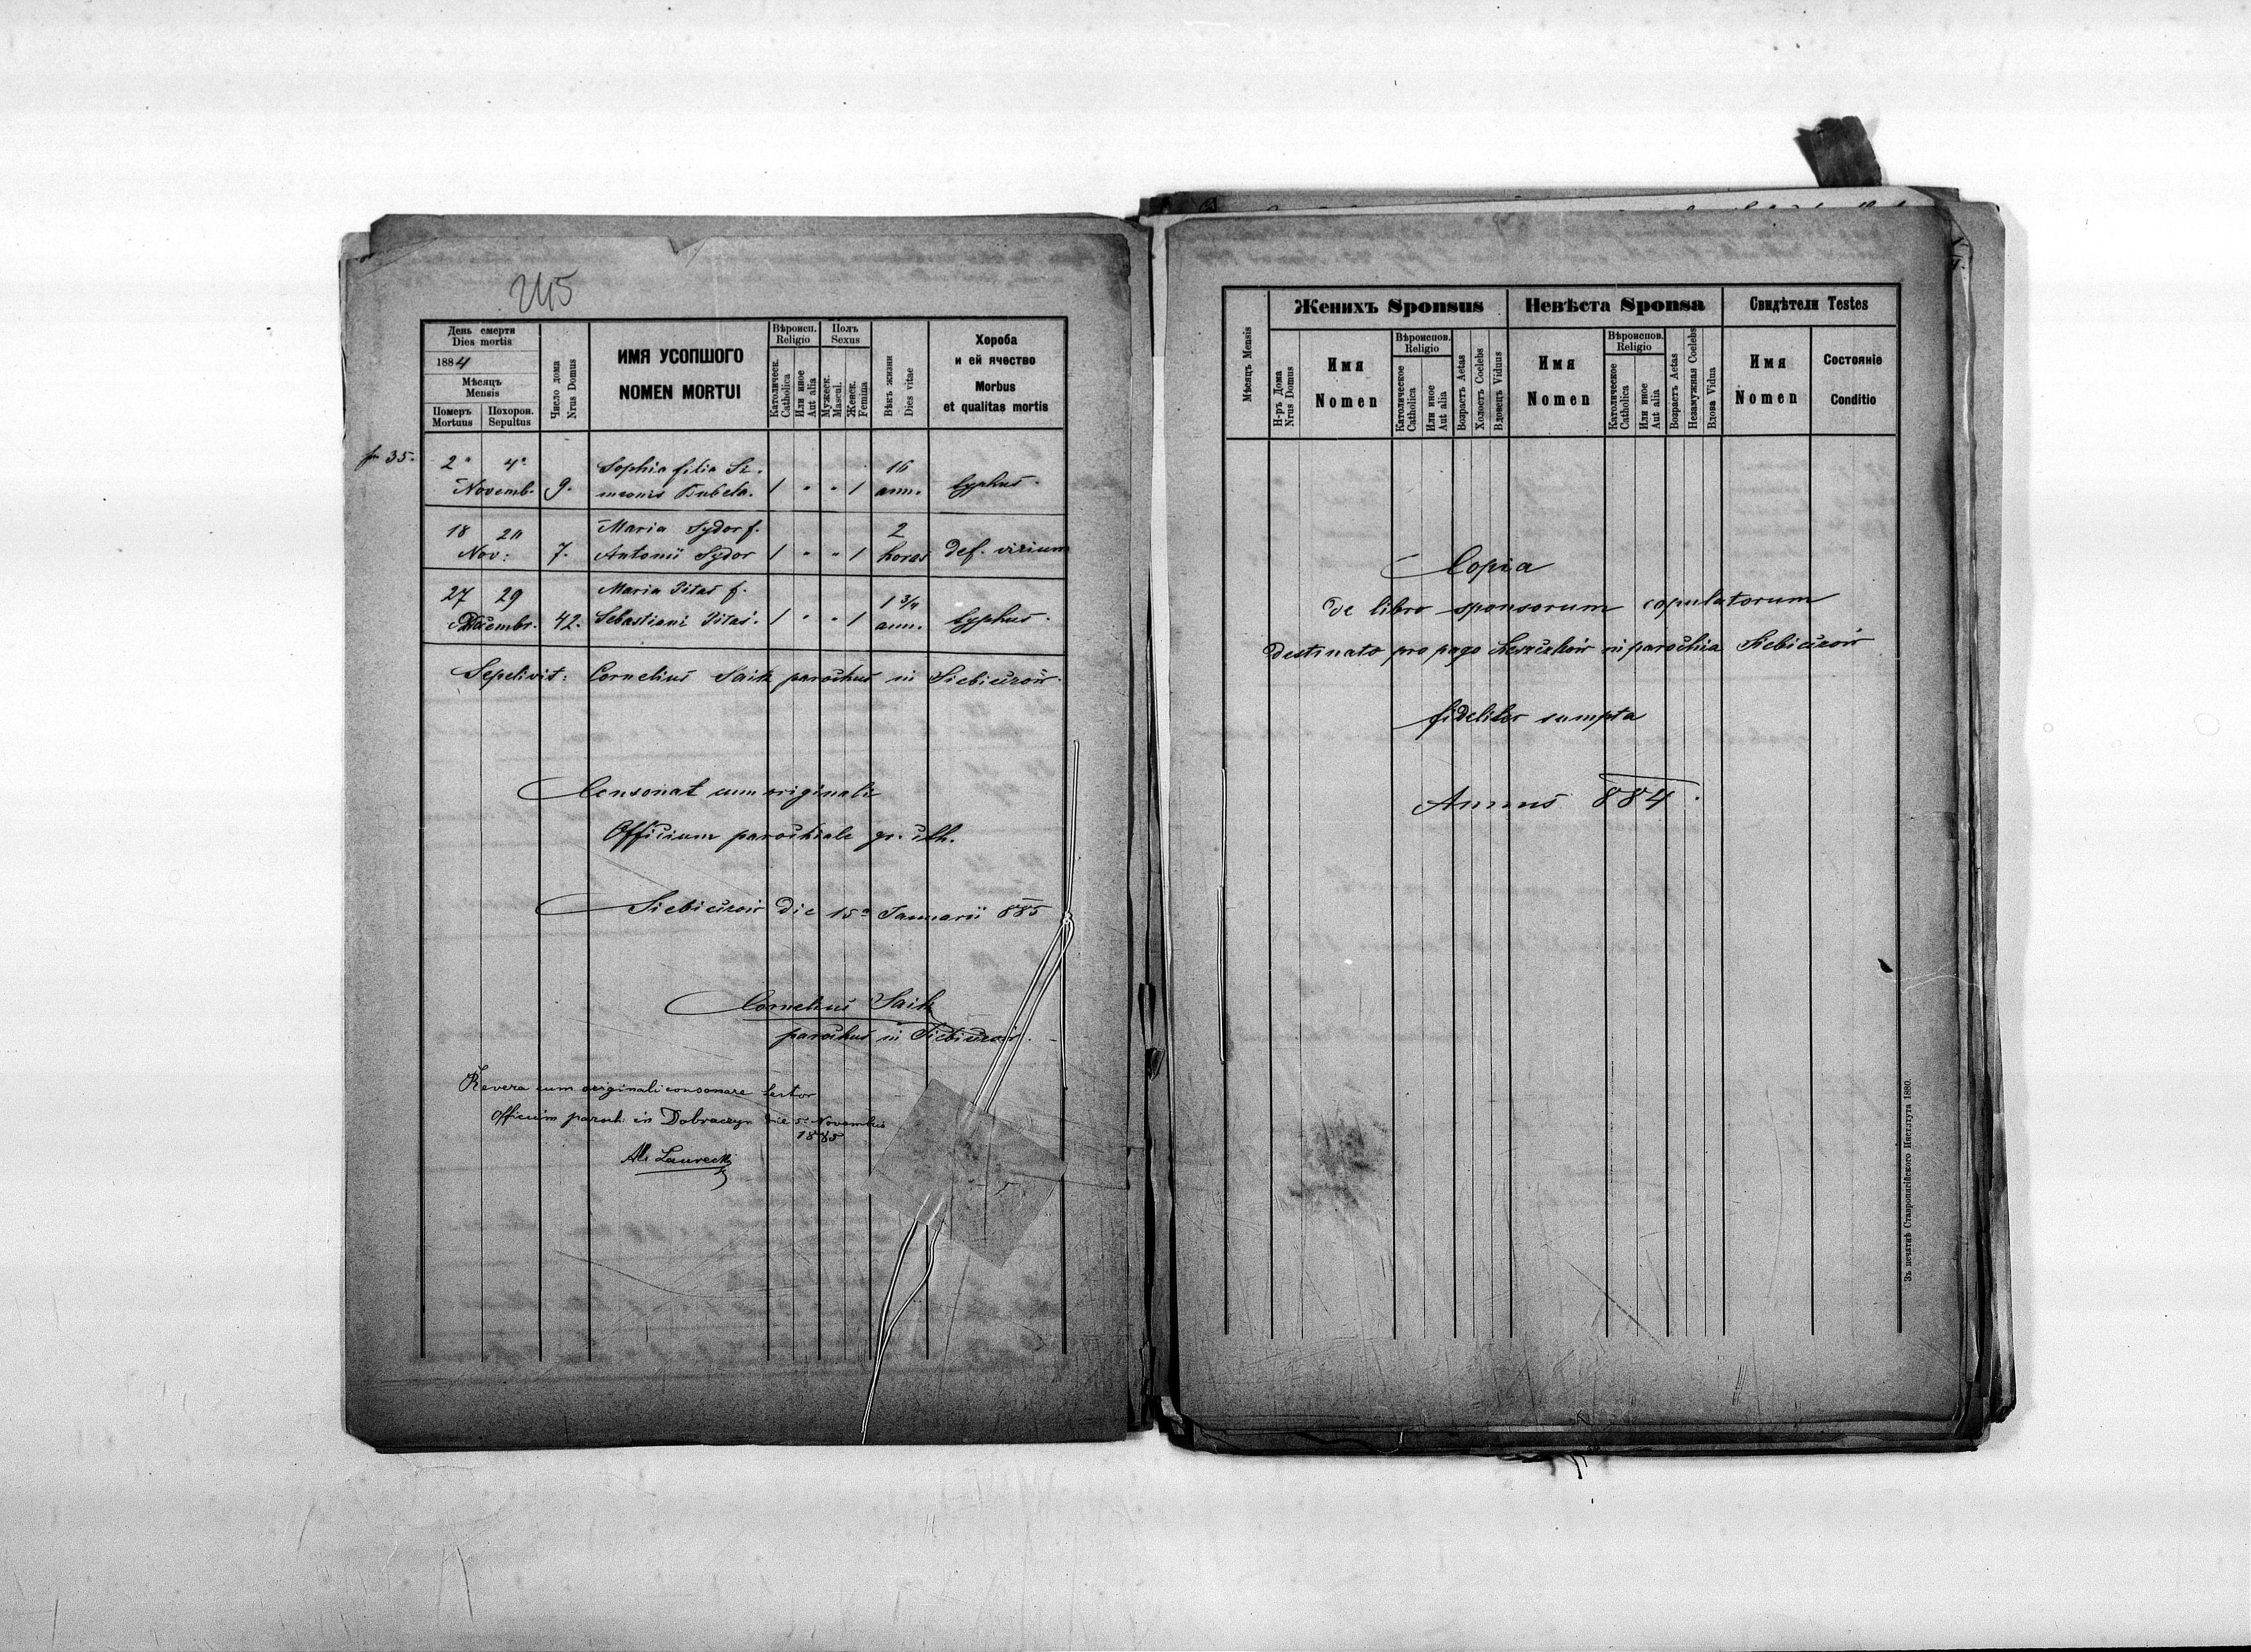 245
День смерти
Dies mortis
1884
Мѣсяцъ
Mensis
Померъ
Mortuus
Похорон.
Sepultus
Число дома
Nrus Domus
ИМЯ УСОПШОГО
NOMEN MORTUI
Вѣроисп.
Religio
Католическ.
Catholica
Или иное
Aut alia
Полъ
Sexus
Мужеск.
Mascul.
Женск.
Femina
Вѣкъ жизни
Dies vitae
Хороба
и ей ячество
Morbus
et qualitas mortis
35.
2a 4a Sophia filia Si- 16
Novemb. 9. meonis Bubela. 1 " " 1 ann. typhus.
18 20 Maria Sydor f. 2
Nov: 7. Antonii Sydor 1 " " 1 horas def. virium
27 29 Maria Pitas f. 1 3/4
Decembr. 42. Sebastiani Pitas. 1 " " 1 ann. typhus.
Sepelivit: Cornelius Saik parochus in Siebieczów.
Consonat cum originali
Officium parochiale gr. cth.
Siebieczów die 15a Januarii 885
Cornelius Saik
parochus in Siebieczów.
Revera cum originali consonare testor
Officium paroch. in Dobraczyn die 5 Novembris
1885
Laurecki
Мѣсяцъ Mensis
Женихъ Sponsus
Н-ръ Дома
Nrus Domus
Имя
Nomen
Вѣроиспов.
Religio
Католическое
Catholica
Или иное
Aut alia
Возрастъ Aetas
Холостъ Coelebs
Вдовецъ Viduus
Невѣста Sponsa
Имя
Nomen
Вѣроиспов.
Religio
Католическое
Catholica
Или иное
Aut alia
Возрастъ Aetas
Незамужная Coelebs
Вдова Vidua
Свидѣтели Testes
Имя
Nomen
Состояніе
Conditio
Copia
de libro sponsorum copulatorum
destinato pro pago in parochia Siebieczów
fideliter sumpta
Annus 884.
Зъ печатнѣ Ставропигійского Института 1880.